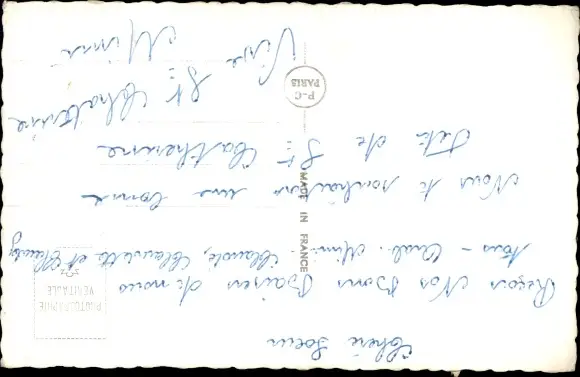 Chère Soeur
Reçois Nos Bons Baisers de nous
tous - Mimi, Claude, Claudette et
Nous te souhaitons une bonne
Fête de Ste Catherine
Vive Ste Chaterine
Mimi
PHOTOGRAPHIE
VÉRITABLE
MADE IN FRANCE
P-C
PARIS